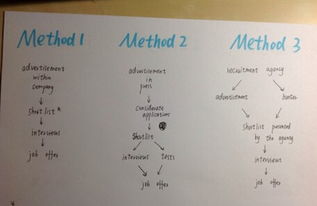 Method 1
advertisement
within
company
shortlist
interviews
job offer
Method 2
advertisement
in
press
considerate
applications
shortlist
interviews tests
job offer
Method 3
recruitment agency
advertisment hunter
shortlist
by the agency
interviews
job offer